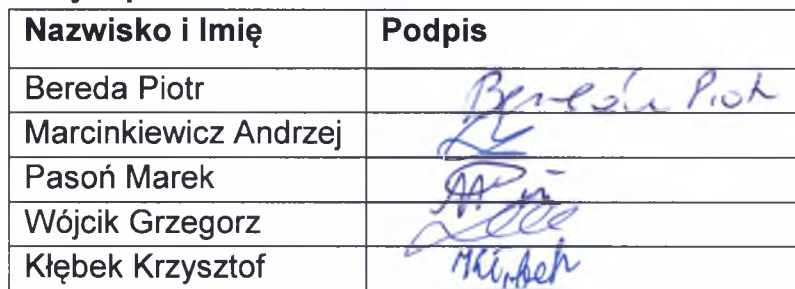 Nazwisko i Imię Podpis
Bereda Piotr Bereda Piotr
Marcinkiewicz Andrzej
Pasoń Marek
Wójcik Grzegorz
Kłębek Krzysztof